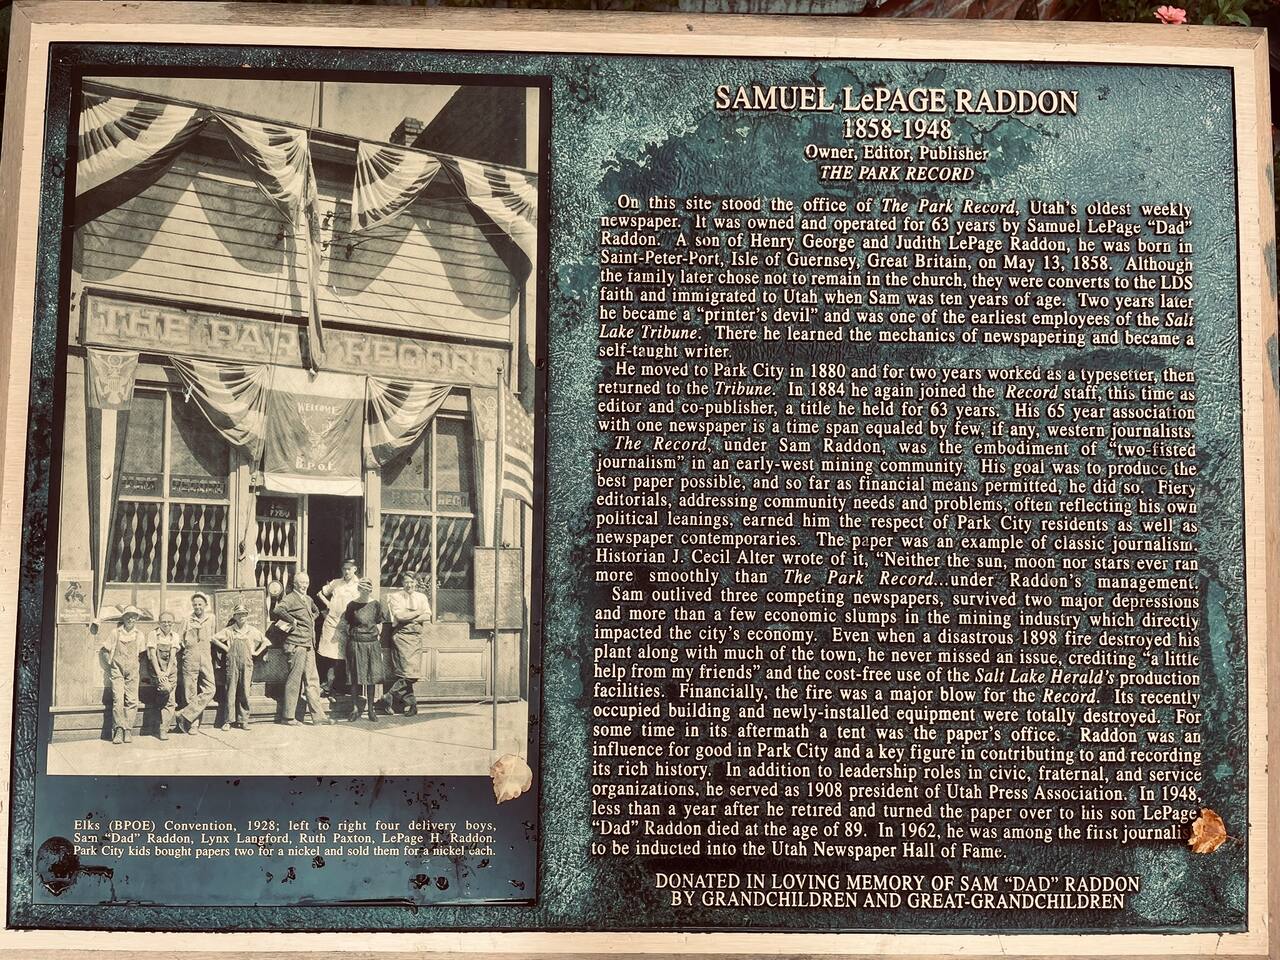 THE PARK RECORD
WELCOME
B.P.O.E.
PARK RECO
Elks (BPOE) Convention, 1928; left to right four delivery boys,
Sam "Dad" Raddon, Lynx Langford, Ruth Paxton, LePage H. Raddon.
Park City kids bought papers two for a nickel and sold them for a nickel each.
SAMUEL LePAGE RADDON
1858-1948
Owner, Editor, Publisher
THE PARK RECORD
On this site stood the office of The Park Record, Utah's oldest weekly
newspaper. It was owned and operated for 63 years by Samuel LePage "Dad"
Raddon. A son of Henry George and Judith LePage Raddon, he was born in
Saint-Peter-Port, Isle of Guernsey, Great Britain, on May 13, 1858. Although
the family later chose not to remain in the church, they were converts to the LDS
faith and immigrated to Utah when Sam was ten years of age. Two years later
he became a "printer's devil" and was one of the earliest employees of the Salt
Lake Tribune. There he learned the mechanics of newspapering and became a
self-taught writer.
He moved to Park City in 1880 and for two years worked as a typesetter, then
returned to the Tribune. In 1884 he again joined the Record staff, this time as
editor and co-publisher, a title he held for 63 years. His 65 year association
with one newspaper is a time span equaled by few, if any, western journalists.
The Record, under Sam Raddon, was the embodiment of "two-fisted
journalism" in an early-west mining community. His goal was to produce the
best paper possible, and so far as financial means permitted, he did so. Fiery
editorials, addressing community needs and problems, often reflecting his own
political leanings, earned him the respect of Park City residents as well as
newspaper contemporaries. The paper was an example of classic journalism.
Historian J. Cecil Alter wrote of it, "Neither the sun, moon nor stars ever ran
more smoothly than The Park Record...under Raddon's management.
Sam outlived three competing newspapers, survived two major depressions
and more than a few economic slumps in the mining industry which directly
impacted the city's economy. Even when a disastrous 1898 fire destroyed his
plant along with much of the town, he never missed an issue, crediting "a little
help from my friends" and the cost-free use of the Salt Lake Herald's production
facilities. Financially, the fire was a major blow for the Record. Its recently
occupied building and newly-installed equipment were totally destroyed. For
some time in its aftermath a tent was the paper's office. Raddon was an
influence for good in Park City and a key figure in contributing to and recording
its rich history. In addition to leadership roles in civic, fraternal, and service
organizations, he served as 1908 president of Utah Press Association. In 1948,
less than a year after he retired and turned the paper over to his son LePage
"Dad" Raddon died at the age of 89. In 1962, he was among the first journalis
to be inducted into the Utah Newspaper Hall of Fame.
DONATED IN LOVING MEMORY OF SAM "DAD" RADDON
BY GRANDCHILDREN AND GREAT-GRANDCHILDREN